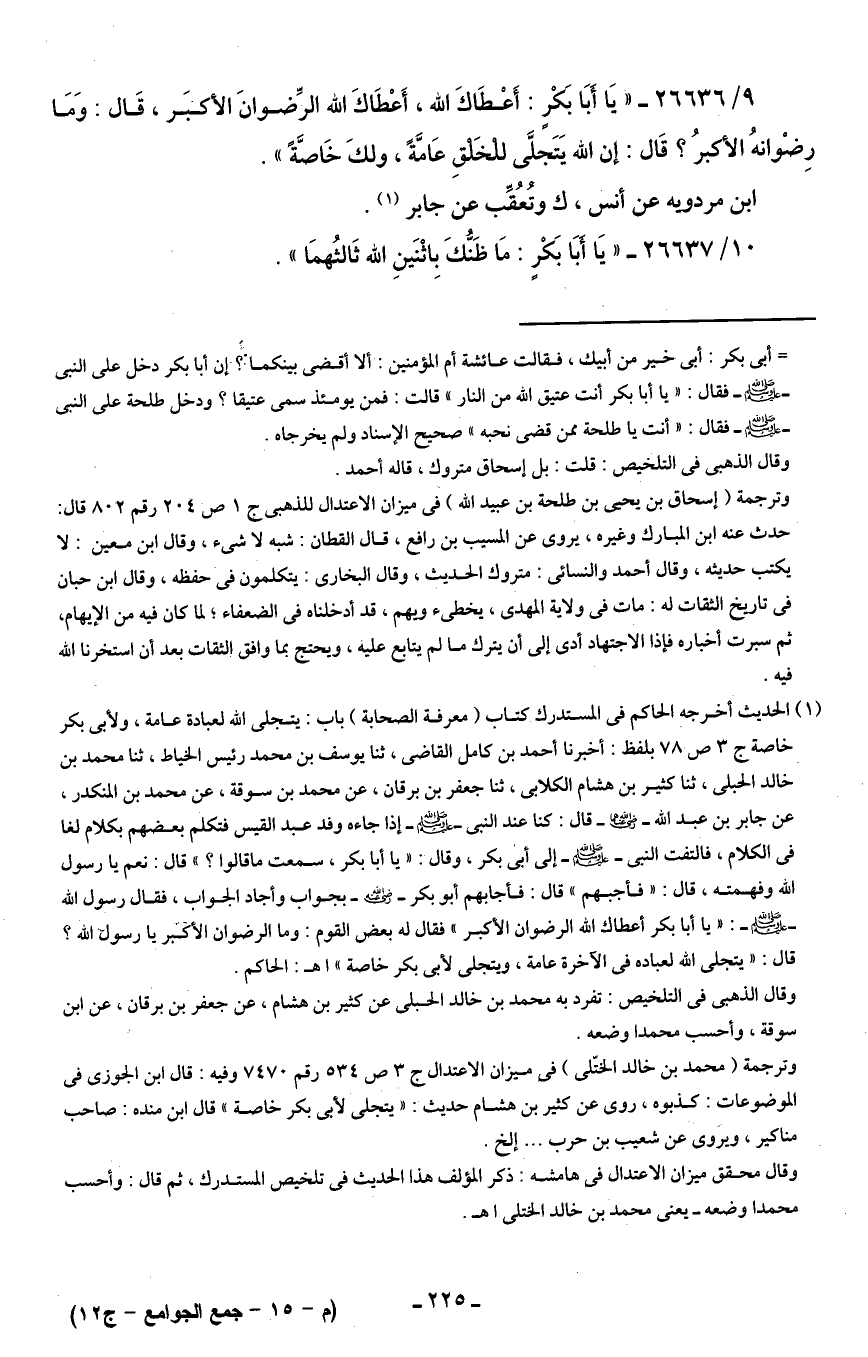 ٩/ ٢٦٦٣٦ ـ « يَا أَبَا بَكْرٍ : أَعْـطَاكَ الله ، أَعْطَاكَ الله الرِّضْـوانَ الأكـبَـر ، قَـال : وَمَـا
رِضْوَانهُ الأكبرُ ؟ قَال : إن الله يَتَجلَّى للْخَلْقِ عَامَّةً ، ولكَ خَاصةً » .
ابن مردويه عن أنس ، ك وتُعُقِّب عن جابر (١) .
١٠/ ٢٦٦٣٧ ـ « يَا أَبَا بَكْرٍ : مَا ظَنُّكَ بِاثْنَينِ الله ثَالثُهمَا » .
= أبى بكر : أبى خـير من أبيك ، فـقالت عـائشة أم المؤمنين : ألا أقـضى بينكمـا ؟ إن أبا بكر دخل على النبى
ـ ﷺ ـ فقال : « يا أبا بكر أنت عتيق الله من النار » قالت : فمن يومـئذ سمى عتيقا ؟ ودخل طلحة على النبى
ـ ﷺ ـ فقال : « أنت يا طلحة ممن قضى نحبه » صحيح الإسناد ولم يخرجاه .
وقال الذهبى فى التلخيص : قلت : بل إسحاق متروك ، قاله أحمد .
وترجمة ( إسحاق بن يحيى بن طلحة بن عبيد الله ) فى ميزان الاعتدال للذهبى ج ١ ص ٢٠٤ رقم ٨٠٢ قال:
حدث عنه ابن المبارك وغيره ، يروى عن المسيب بن رافع ، قـال القطان : شبه لا شىء ، وقال ابن مـعين : لا
يكتب حديثه ، وقال أحمد والنسائى : متروك الحـديث ، وقال البخارى : يتكلمون فى حفظه ، وقال ابن حبان
فى تاريخ الثقات له : مات فى ولاية المهدى ، يخطىء ويهم ، قد أدخلناه فى الضعفاء ؛ لما كان فيه من الإيهام،
ثم سبرت أخباره فإذا الاجتهاد أدى إلى أن يترك مـا لم يتابع عليه ، ويحتج بما وافق الثقات بعد أن استخرنا الله
فيه .
(١) الحديث أخـرجه الحاكم فى المستدرك كتـاب ( معرفـة الصحابة ) باب : يتـجلى الله لعبادة عـامة ، ولأبى بكر
خاصة ج ٣ ص ٧٨ بلفظ : أخبرنا أحمد بن كامل القاضى ، ثنا يوسف بن محمد رئيس الخياط ، ثنا محمد بن
خالد الحبلى ، ثنا كثـير بن هشام الكلابى ، ثنا جعفر بن برقان ، عن محمد بن سـوقة ، عن محمد بن المنكدر ،
عن جابر بن عبـد الله ـ رضي الله عنهما ـ قال : كنا عند النبى ـ ﷺ ـ إذا جاءه وفد عبد القيس فتكلم بعضهم بكلام لغا
فى الكلام ، فالتفت النبى ـ ﷺ ـ إلى أبى بكر ، وقال : « يا أبا بكر ، سـمعت ماقالوا ؟ » قال : نعم يا رسول
الله وفهـمته ، قال : « فـأجبـهم » قال : فـأجابهم أبو بكر ـ رضي الله عنه ـ بجواب وأجاد الجـواب ، فقـال رسول الله
ـ ﷺ ـ : « يا أبا بكر أعطاك الله الرضوان الأكبـر » فقال له بعض القوم : وما الرضوان الأكبر يا رسول الله ؟
قال : « يتجلى الله لعباده فى الآخرة عامة ، ويتجلى لأبى بكر خاصة » ا هـ : الحاكم .
وقال الذهبى فى التلخيص : تفرد به محمد بن خالد الحـبلى عن كثير بن هشام ، عن جعفر بن برقان ، عن ابن
سوقة ، وأحسب محمدا وضعه .
وترجمة ( محمد بن خالد الختّلى ) فى مـيزان الاعتدال ج ٣ ص ٥٣٤ رقم ٧٤٧٠ وفيه : قال ابن الجوزى فى
الموضوعات : كـذبوه ، روى عن كثير بن هشـام حديث : « يتجلى لأبى بكر خاصـة » قال ابن منده : صاحب
مناكير ، ويروى عن شعيب بن حرب ... إلخ .
وقال محـقق ميزان الاعتدال فى هامشـه : ذكر المؤلف هذا الحديث فى تلخيص المستـدرك ، ثم قال : وأحسب
محمدا وضعه ـ يعنى محمد بن خالد الختلى ا هـ .
ـ ٢٢٥ ـ
(م - ١٥ - جمع الجوامع - ج١٢)